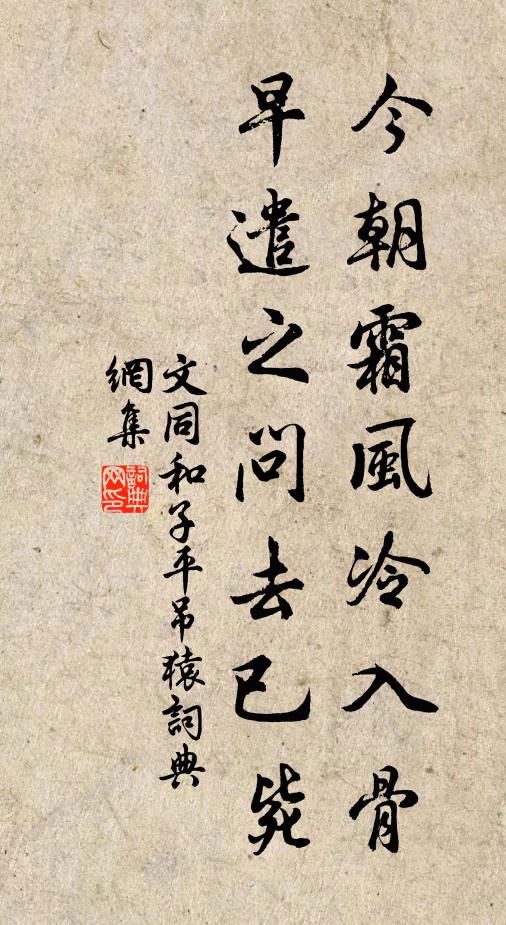 今朝霜風冷入骨
早遣之問去已毙
文同和子平吊猿詞典
網集
詞典网印